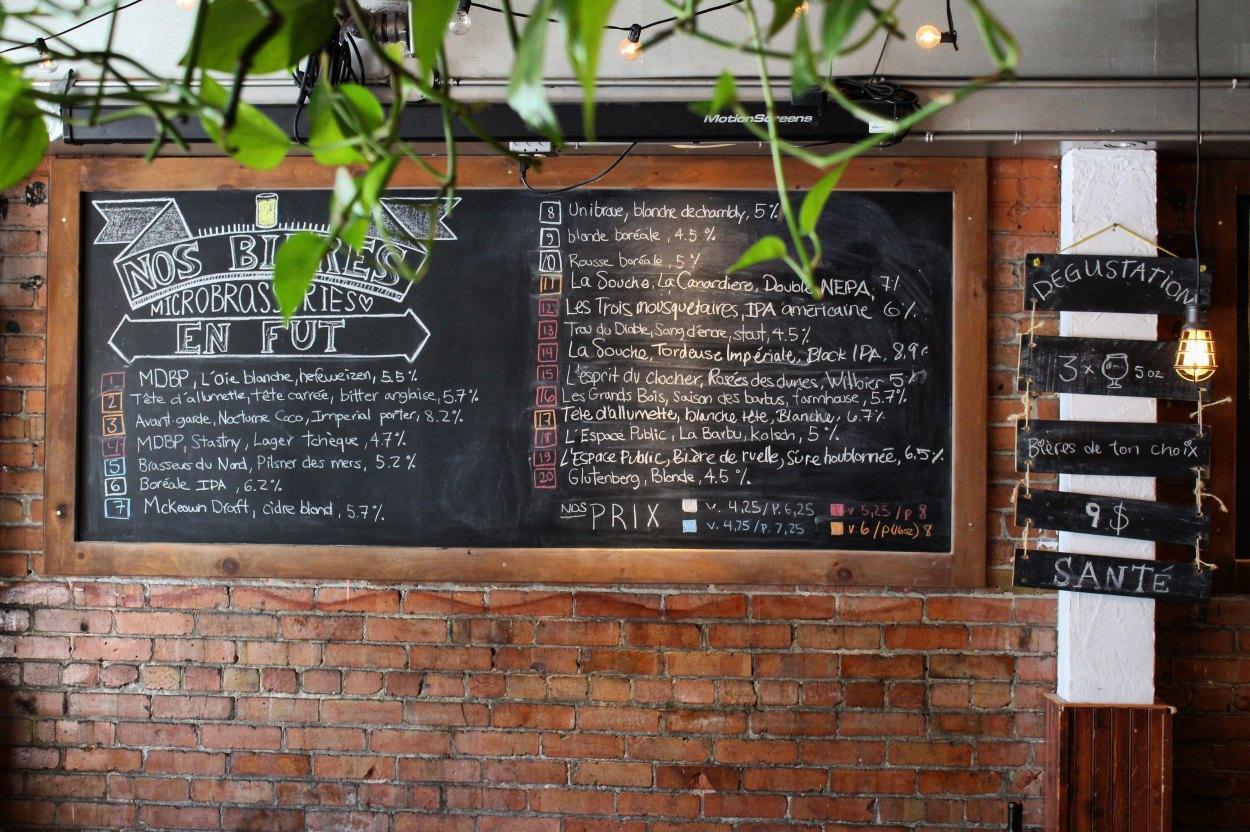 MotionScreens
NOS BIÈRES
MICROBRASSERIES♡
EN FUT
1 MDBP, L'oie blanche, hefeweizen, 5.5%
2 Tête d'allumette, tête carrée, bitter anglaise, 5.7%
3 Avant-garde, Nocturne Coco, Imperial porter, 8.2%
4 MDBP, Stastny, Lager tchèque, 4.7%
5 Brasseurs du Nord, Pilsner des mers, 5.2%
6 Boréale IPA, 6.2%
7 Mckeown Draft, cidre blond, 5.7%
8 Unibroue, blanche de chambly, 5%
9 blonde boréale, 4.5%
10 Rousse boréale, 5%
11 La Souche, La Canardiere, Double NEIPA, 7%
12 Les Trois mousquetaires, IPA americaine 6%
13 Trou du Diable, Sang d'encre, stout, 4.5%
14 La Souche, Tordeuse Impériale, Black IPA, 8,9%
15 L'esprit du clocher, Rosées des dunes, Witbier 5%
16 Les Grands Bois, saison des barbus, farmhouse, 5.7%
17 Tête d'allumette, blanche tête, Blanche, 6.7%
18 L'Espace Public, La Barbu, kolsch, 5%
19 L'Espace Public, Bière de ruelle, Sûre houblonnée, 6.5%
20 Glutenberg, Blonde, 4.5%
NOS PRIX
v. 4,25/p. 6,25
v. 5,25/p 8
v. 4,75/p. 7,25
v 6/p(16oz) 8
DEGUSTATION
3 x 5 oz
Bières de ton choix
9 $
SANTÉ